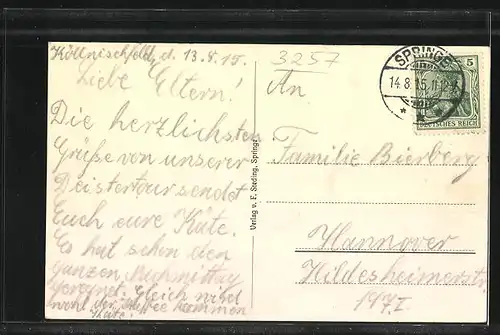 Köllnischfeld, d. 13.8.15.
Liebe Eltern!
Die herzlichsten
Grüße von unserer
Deistertour sendet
Euch eure Käte.
Es hat schon den
ganzen Nachmittag
geregnet. Gleich wird
wohl der Kaffee kommen
Käte.
3257
An
Familie Bierberg
Hannover
Hildesheimerstr.
I
Verlag v. F. Steding, Springe
SPRINGE
14.8.15.
5
DEUTSCHES REICH